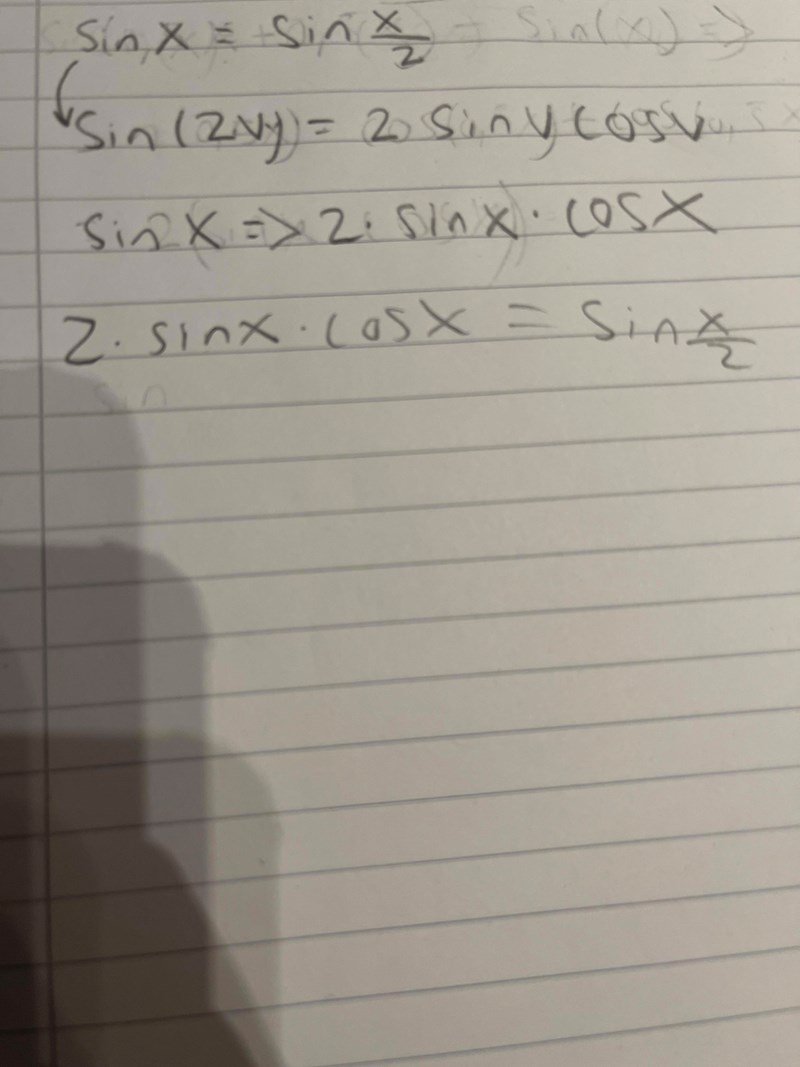 sin x = sin x/2
sin(2v) = 2 sin v cos v
sin x => 2 · sin x · cos x
2 · sin x · cos x = sin x/2